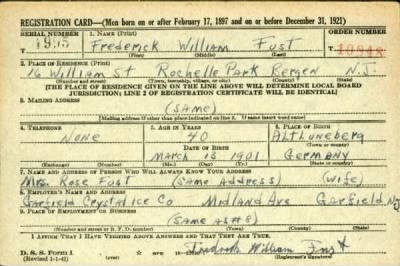 REGISTRATION CARD—(Men born on or after February 17, 1897 and on or before December 31, 1921)
SERIAL NUMBER 1. NAME (Print) ORDER NUMBER
1995 Frederick William Fust 10848
(First) (Middle) (Last)
2. PLACE OF RESIDENCE (Print)
16 William St Rochelle Park Bergen N.J.
(Number and street) (Town, township, village, or city) (County) (State)
[THE PLACE OF RESIDENCE GIVEN ON THE LINE ABOVE WILL DETERMINE LOCAL BOARD
JURISDICTION; LINE 2 OF REGISTRATION CERTIFICATE WILL BE IDENTICAL]
3. MAILING ADDRESS
(SAME)
[Mailing address if other than place indicated on line 2. If same insert word same]
4. TELEPHONE 5. AGE IN YEARS 6. PLACE OF BIRTH
NONE 40 Altluneberg
DATE OF BIRTH (Town or county)
March 13 1901 Germany
(Exchange) (Number) (Mo.) (Day) (Yr.) (State or country)
7. NAME AND ADDRESS OF PERSON WHO WILL ALWAYS KNOW YOUR ADDRESS
Mrs. Rose Fust (Same Address) (Wife)
8. EMPLOYER'S NAME AND ADDRESS
Garfield Crystal Ice Co Midland Ave Garfield NJ
9. PLACE OF EMPLOYMENT OR BUSINESS
(SAME AS #8)
(Number and street or R. F. D. number) (Town) (County) (State)
I AFFIRM THAT I HAVE VERIFIED ABOVE ANSWERS AND THAT THEY ARE TRUE.
D. S. S. Form 1 Fredrick William Fust
(Revised 1-1-42) (Registrant's signature)